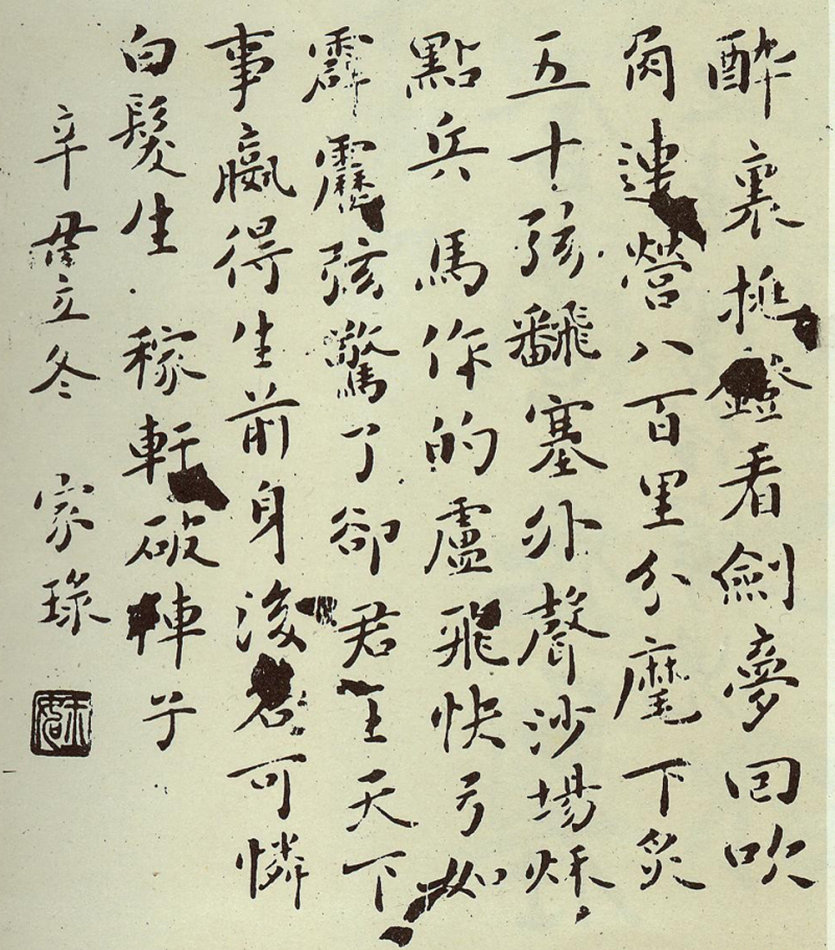 醉裏挑鐙看劍夢回吹
角連營八百里分麾下炙
五十弦飜塞外聲沙場秌
點兵馬作的盧飛快弓如
霹靂弦驚了卻君王天下
事贏得生前身後名可憐
白髮生 稼軒破陣子
辛立冬 家